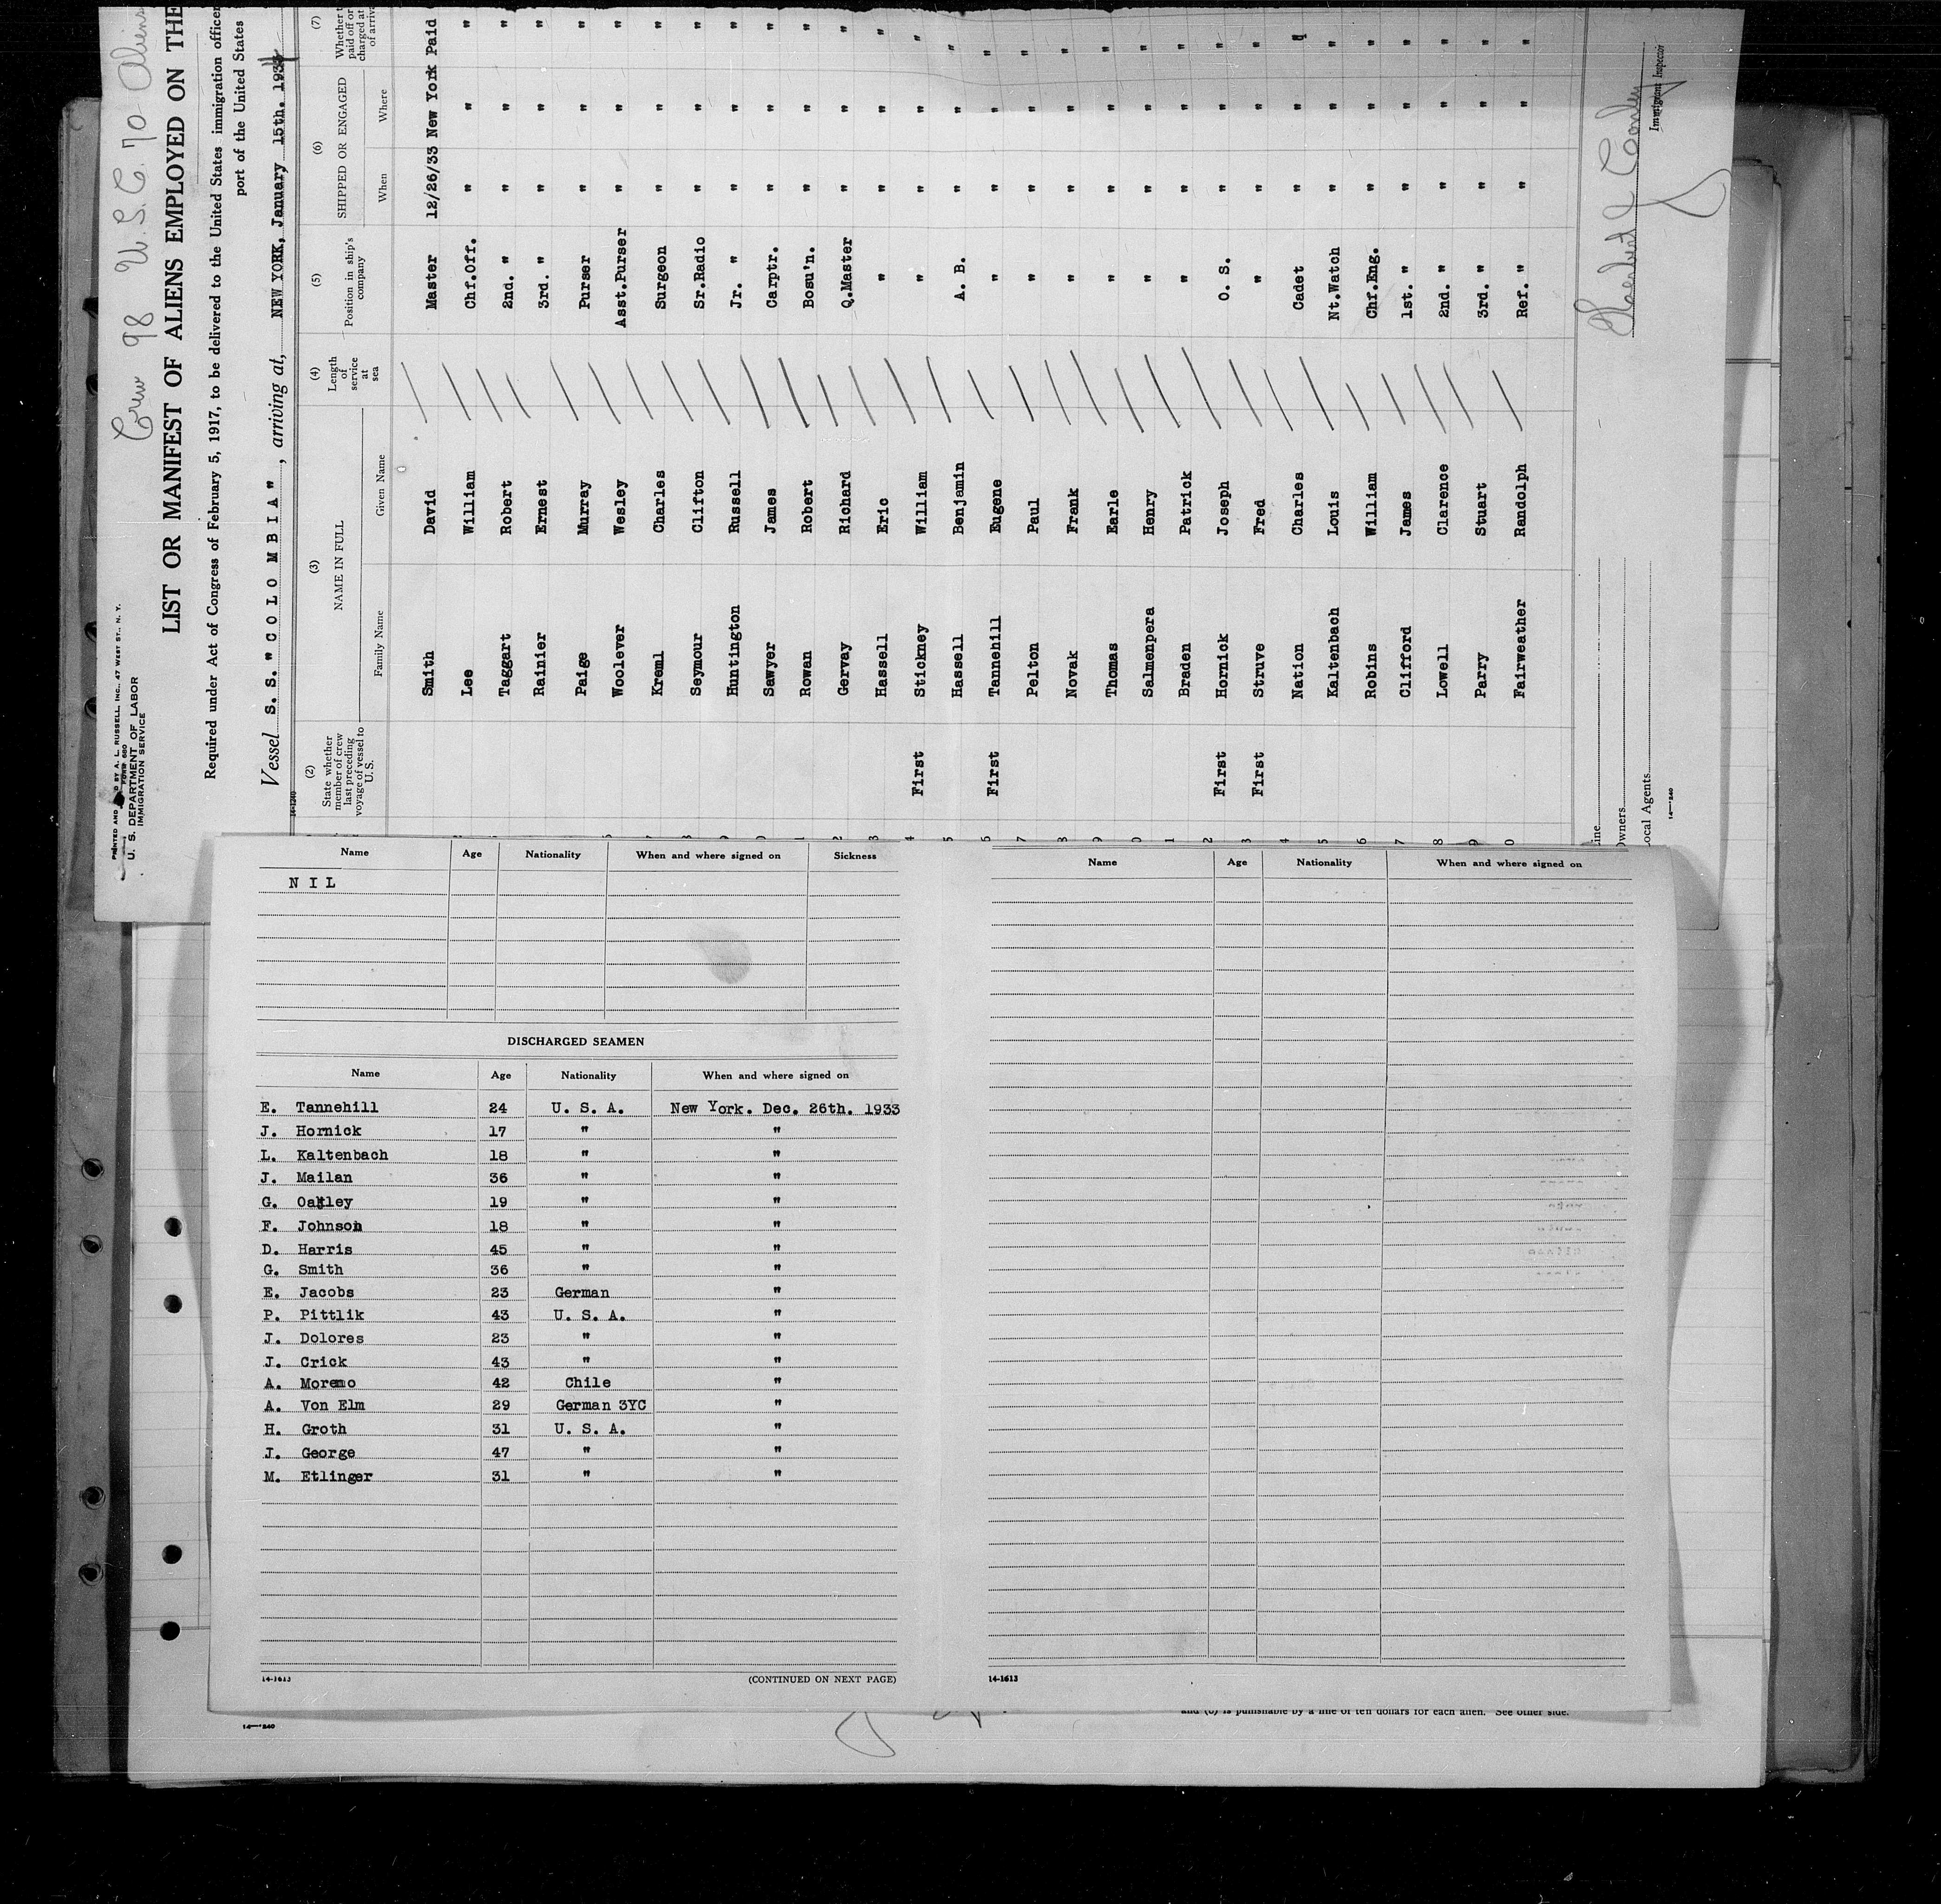 Crew 98 U.S.C. 70 Aliens
U. S. DEPARTMENT OF LABOR
IMMIGRATION SERVICE
LIST OR MANIFEST OF ALIENS EMPLOYED ON THE
Required under Act of Congress of February 5, 1917, to be delivered to the United States immigration officer
port of the United States
Vessel S. S. " C O L O M B I A ", arriving at, NEW YORK, January 15th. 193
(2) State whether member of crew last preceding voyage of vessel to U.S. (3) NAME IN FULL Family Name Given Name (4) Length of service at sea (5) Position in ship's company (6) SHIPPED OR ENGAGED When Where (7)
Smith David Master 12/26/33 New York Paid
Lee William Chf.Off. " " "
Taggart Robert 2nd. " " " "
Rainier Ernest 3rd. " " " "
Paige Murray Purser " " "
Woolever Wesley Asst.Purser " " "
Kreml Charles Surgeon " " "
Seymour Clifton Sr.Radio " " "
Huntington Russell Jr. " " " "
Sawyer James Carptr. " " "
Rowan Robert Bosu'n. " " "
Gervay Richard Q.Master " " "
Hassell Eric " " " "
First Stickney William " " " "
Hassell Benjamin A. B. " " "
First Tannehill Eugene " " " "
Pelton Paul " " " "
Novak Frank " " " "
Thomas Earle " " " "
Salmenpera Henry " " " "
Braden Patrick " " " "
First Hornick Joseph O. S. " " "
First Struve Fred " " " "
Nation Charles Cadet " " "
Kaltenbach Louis Nt.Watch " " "
Robins William Chf.Eng. " " "
Clifford James 1st. " " " "
Lowell Clarence 2nd. " " " "
Parry Stuart 3rd. " " " "
Fairweather Randolph Ref. " " " "
Immigrant Inspector
Name Age Nationality When and where signed on Sickness
N I L
DISCHARGED SEAMEN
Name Age Nationality When and where signed on
E. Tannehill 24 U. S. A. New York. Dec. 26th. 1933
J. Hornick 17 " "
L. Kaltenbach 18 " "
J. Mailan 36 " "
G. Oakley 19 " "
F. Johnson 18 " "
D. Harris 45 " "
G. Smith 36 " "
E. Jacobs 23 German "
P. Pittlik 43 U. S. A. "
J. Dolores 23 " "
J. Crick 43 " "
A. Moreno 42 Chile "
A. Von Elm 29 German 3YC "
H. Groth 31 U. S. A. "
J. George 47 " "
M. Etlinger 31 " "
14-1613 (CONTINUED ON NEXT PAGE)
Name Age Nationality When and where signed on
14-1613
14—1240
and (6) is punishable by a fine of ten dollars for each alien. See other side.